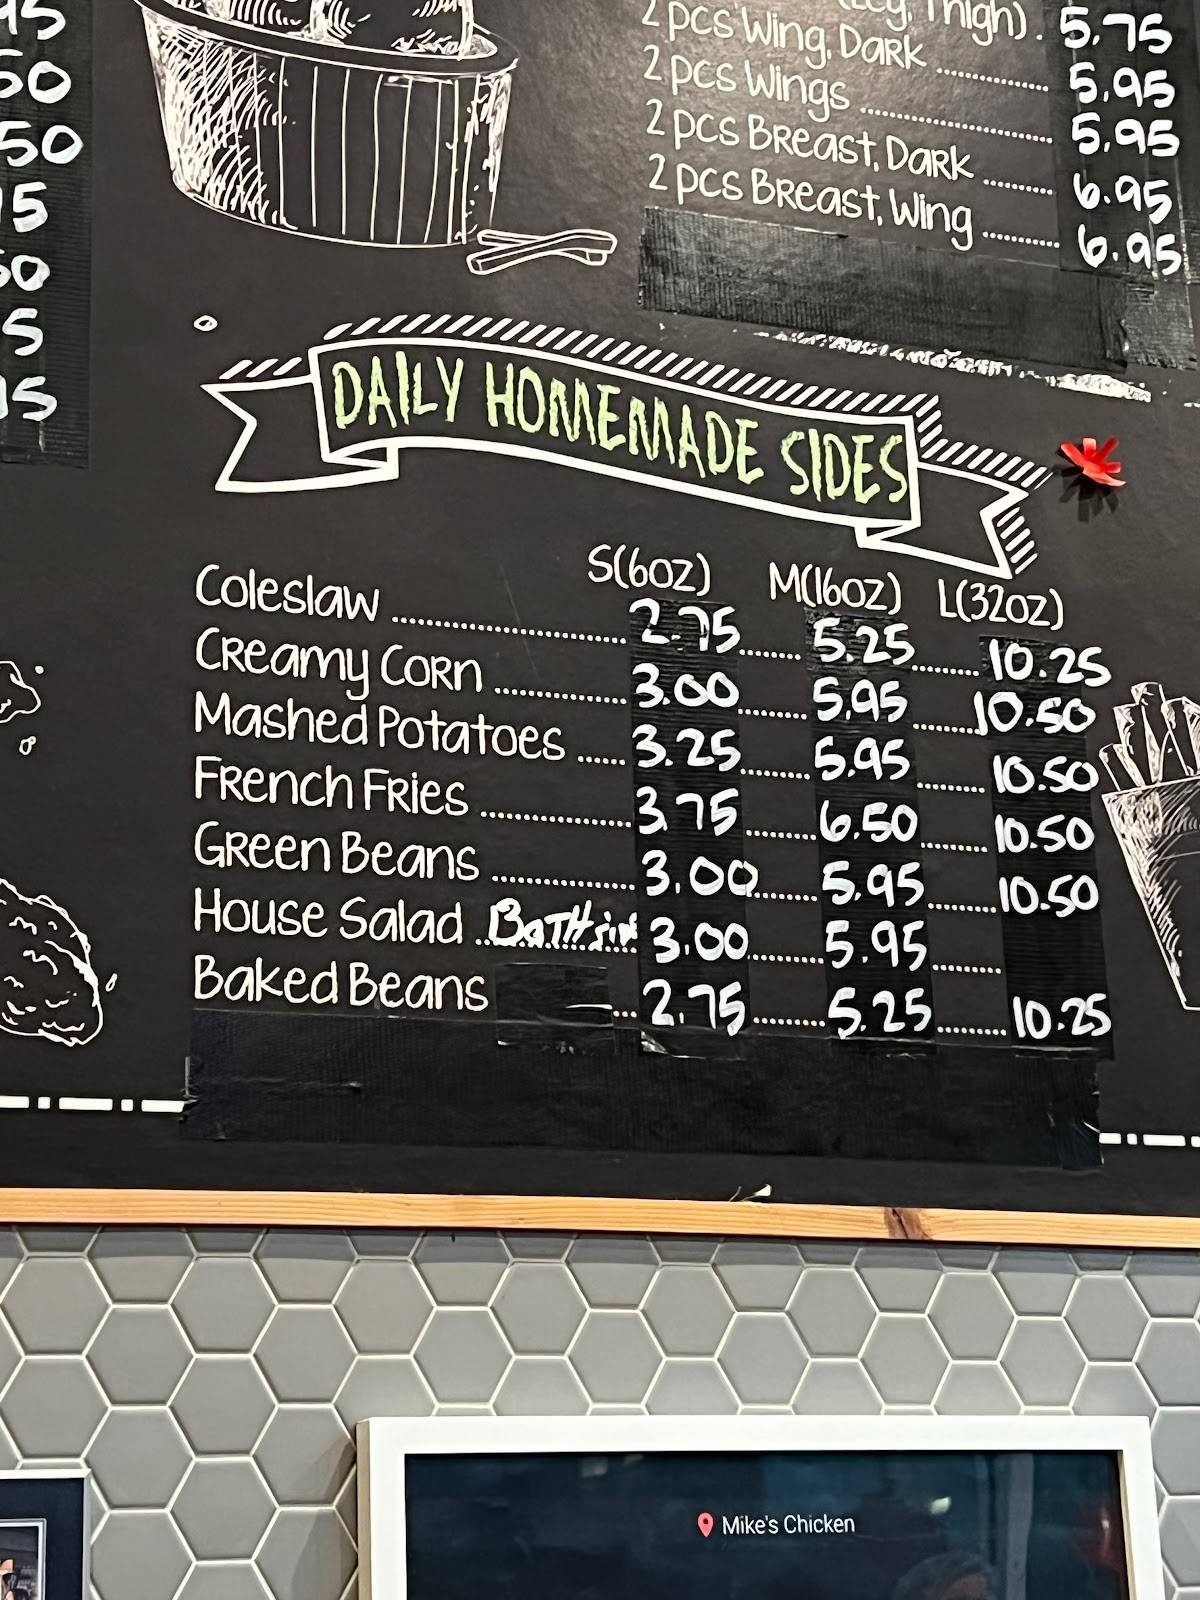 95
50
50
15
50
5
15
(Leg, Thigh) . 5.75
2 pcs Wing, Dark ............ 5.95
2 pcs Wings .................... 5.95
2 pcs Breast, Dark ....... 6.95
2 pcs Breast, Wing ........ 6.95
DAILY HOMEMADE SIDES
S(6oz) M(16oz) L(32oz)
Coleslaw ........ 2.75 ........ 5.25 ........ 10.25
Creamy Corn ........ 3.00 ........ 5.95 ........ 10.50
Mashed Potatoes ..... 3.25 ........ 5.95 ........ 10.50
French Fries ........ 3.75 ........ 6.50 ........ 10.50
Green Beans ........ 3.00 ........ 5.95 ........ 10.50
House Salad ........ 3.00 ........ 5.95 ........
Baked Beans ... 2.75 ........ 5.25 ........ 10.25
Mike's Chicken